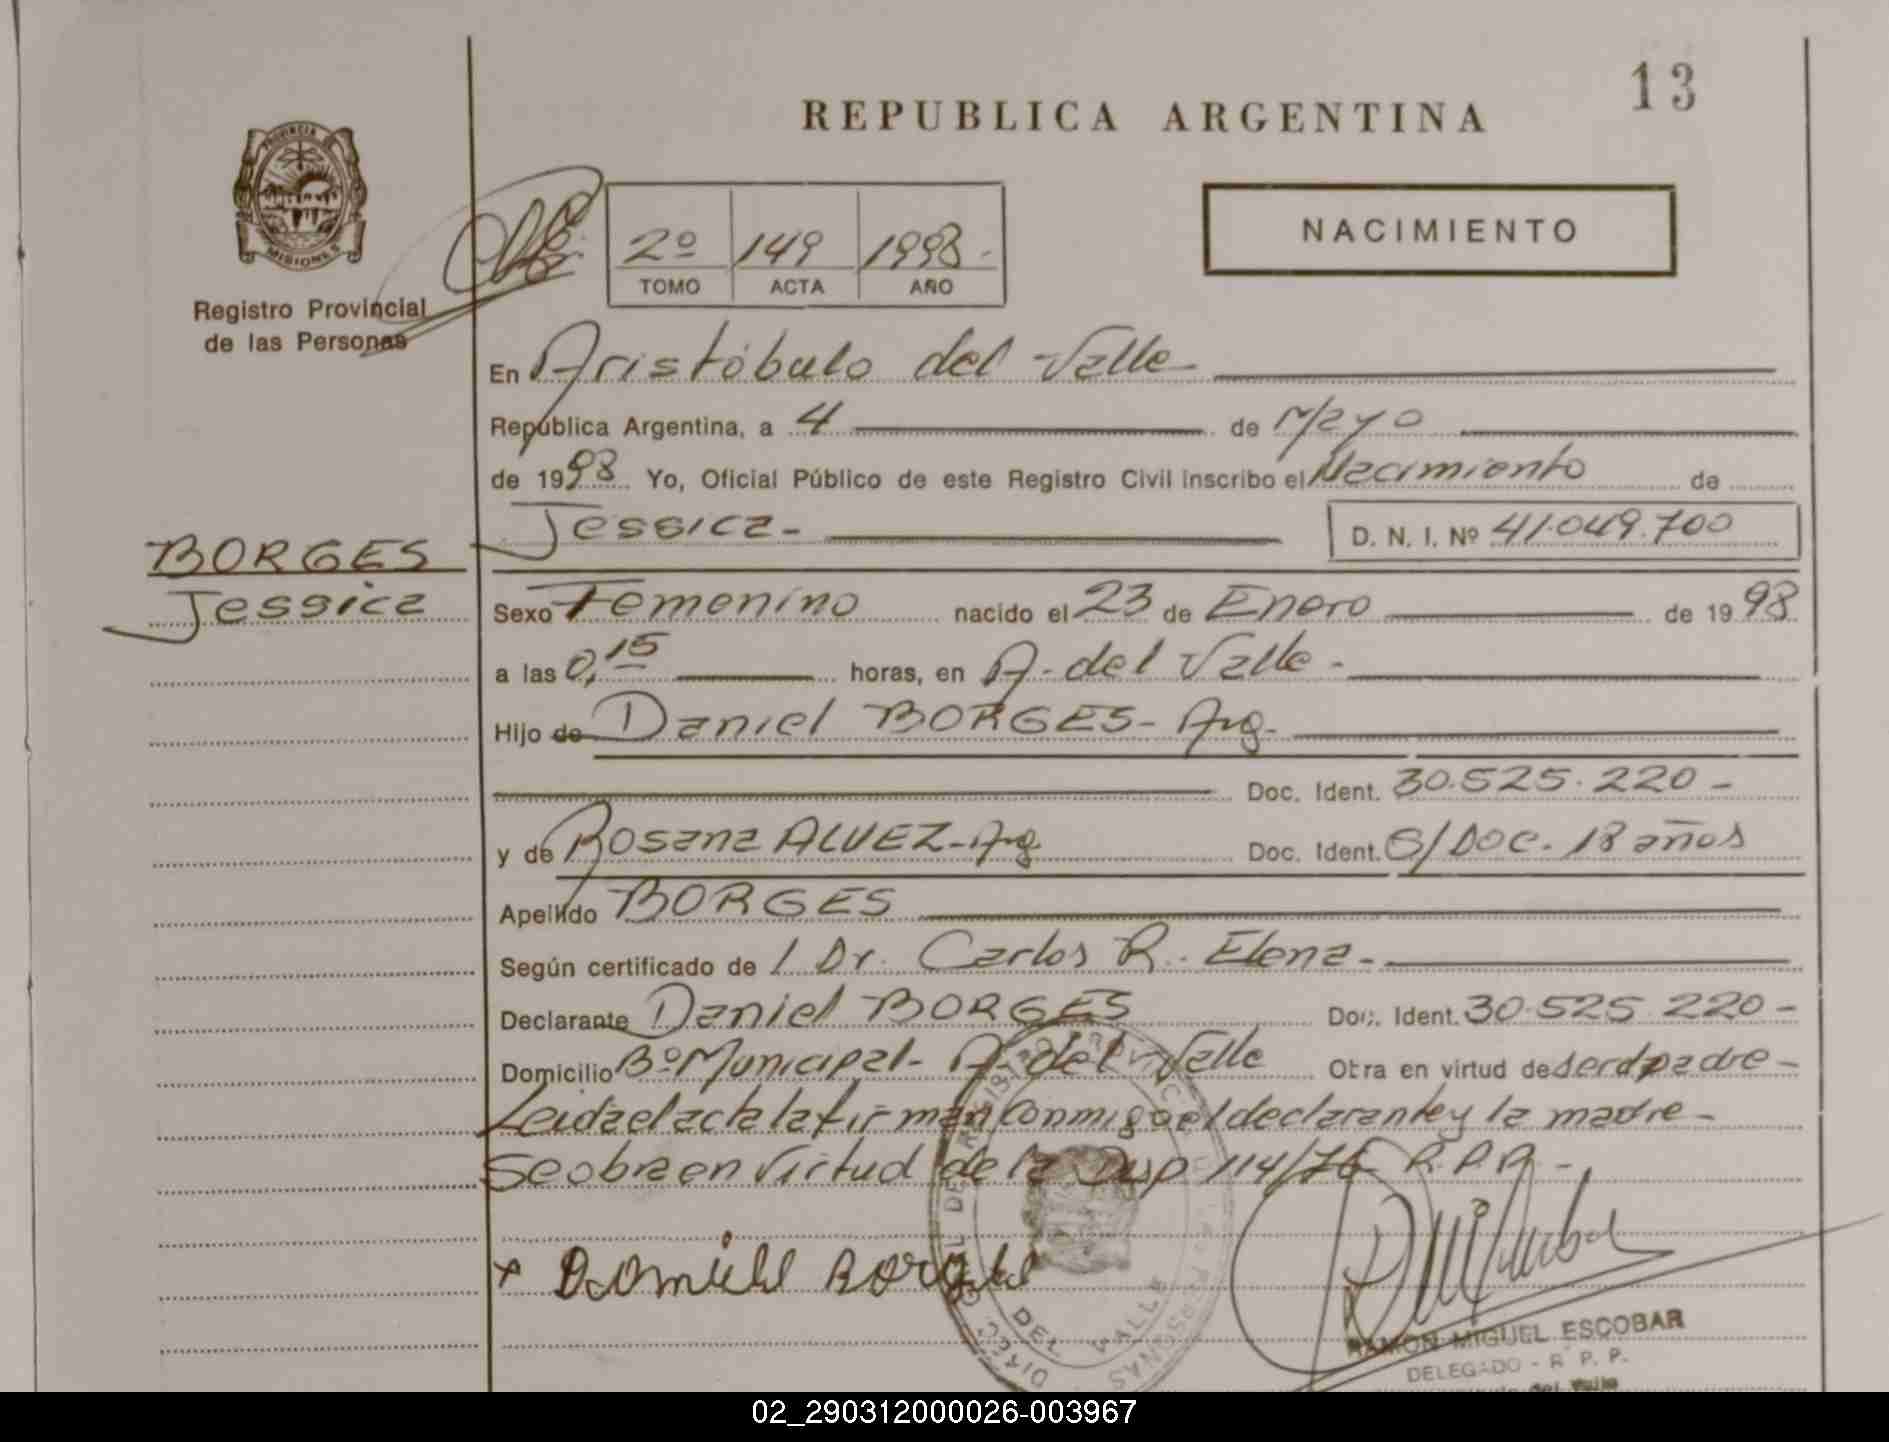 13
REPUBLICA ARGENTINA
PROVINCIA DE
MISIONES
Registro Provincial
de las Personas
2º 149 1998.-
TOMO ACTA AÑO
NACIMIENTO
En Aristóbulo del Valle-
República Argentina, a 4 de Mayo
de 1998 Yo, Oficial Público de este Registro Civil inscribo el Nacimiento de
Jessica- D. N. I. Nº 41.049.700
BORGES
Jessica
Sexo Femenino nacido el 23 de Enero de 1998
a las 0,15 horas, en A. del Valle.-
Hijo de Daniel BORGES- Arg.
Doc. Ident. 30.525.220-
y de Rosana ALVEZ-Arg. Doc. Ident. S/Doc. 18 años
Apellido BORGES
Según certificado de / Dr. Carlos R. Elena-
Declarante Daniel BORGES Doc. Ident. 30.525.220-
Domicilio Bº Municipal- A. del Valle Otra en virtud de ser el padre-
Leida el acta la firman conmigo el declarante y la madre-
se obra en virtud de la Disp 114/76 R.P.P.-
x Domiell Borges
DEL VALLE
RAMON MIGUEL ESCOBAR
DELEGADO - R. P. P.
del Valle
02_290312000026-003967